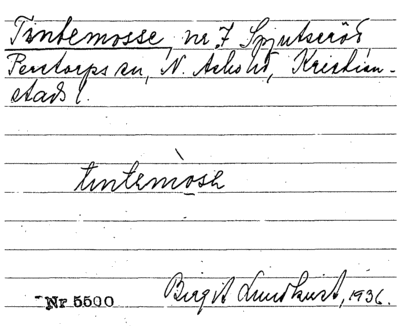 Tintemosse, nr 7 Spjutseröd
Perstorps sn, N. Åsbo hd, Kristian-
stads l.
tintemòsa
Nr 5500 Birgit Lundkvist, 1936.